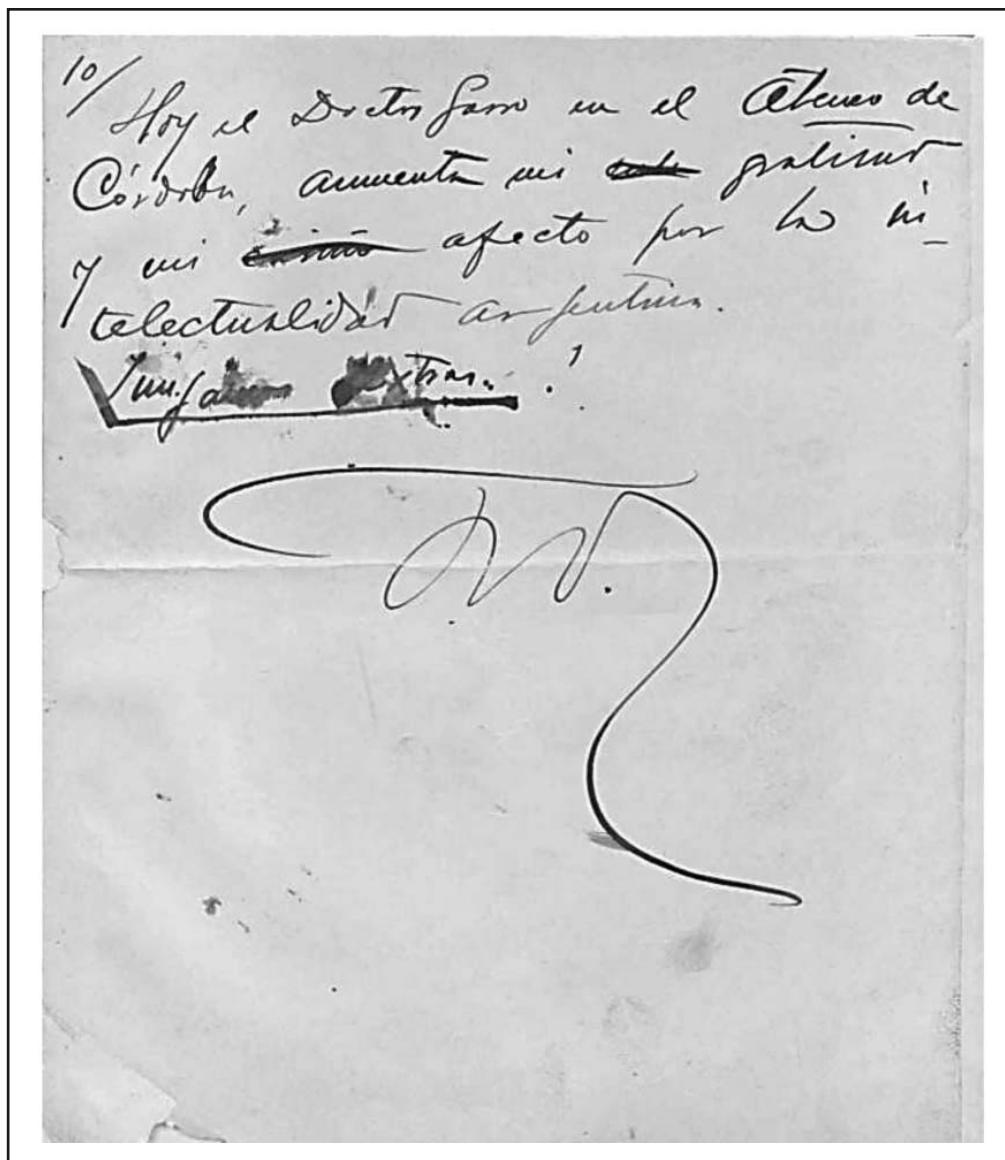 10/
Hoy el Doctor Garro en el Ateneo de
Córdoba, aumenta mi gratitud
y mi cariño afecto por la in-
telectualidad argentina.